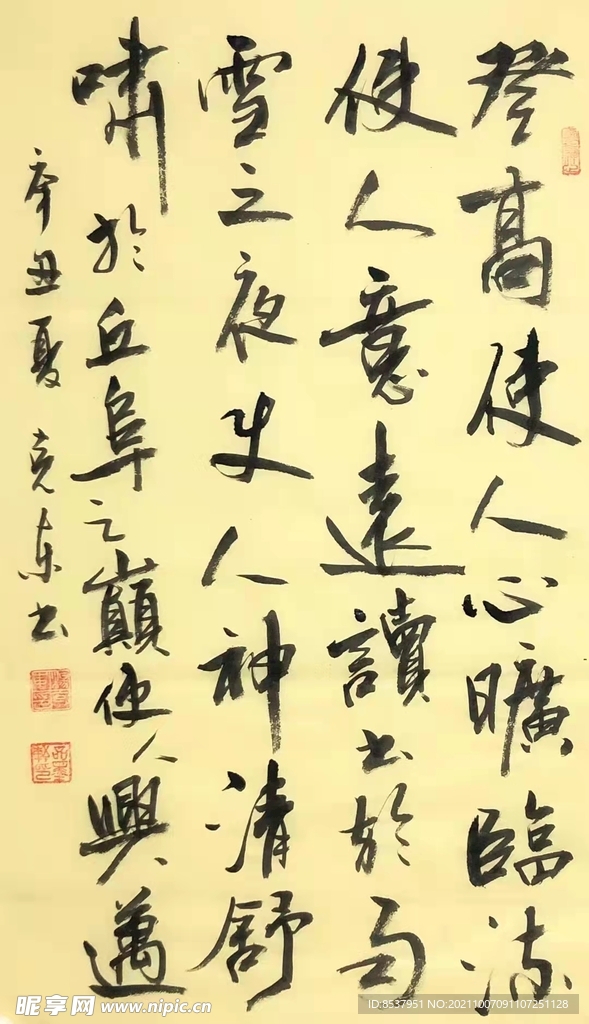 登高使人心曠臨流
使人意遠讀書於雨
雪之夜使人神清舒
嘯於丘阜之巔使人興邁
辛丑夏 克東书
昵享网 www.nipic.cn
ID:8537951 NO:20211007091107251128